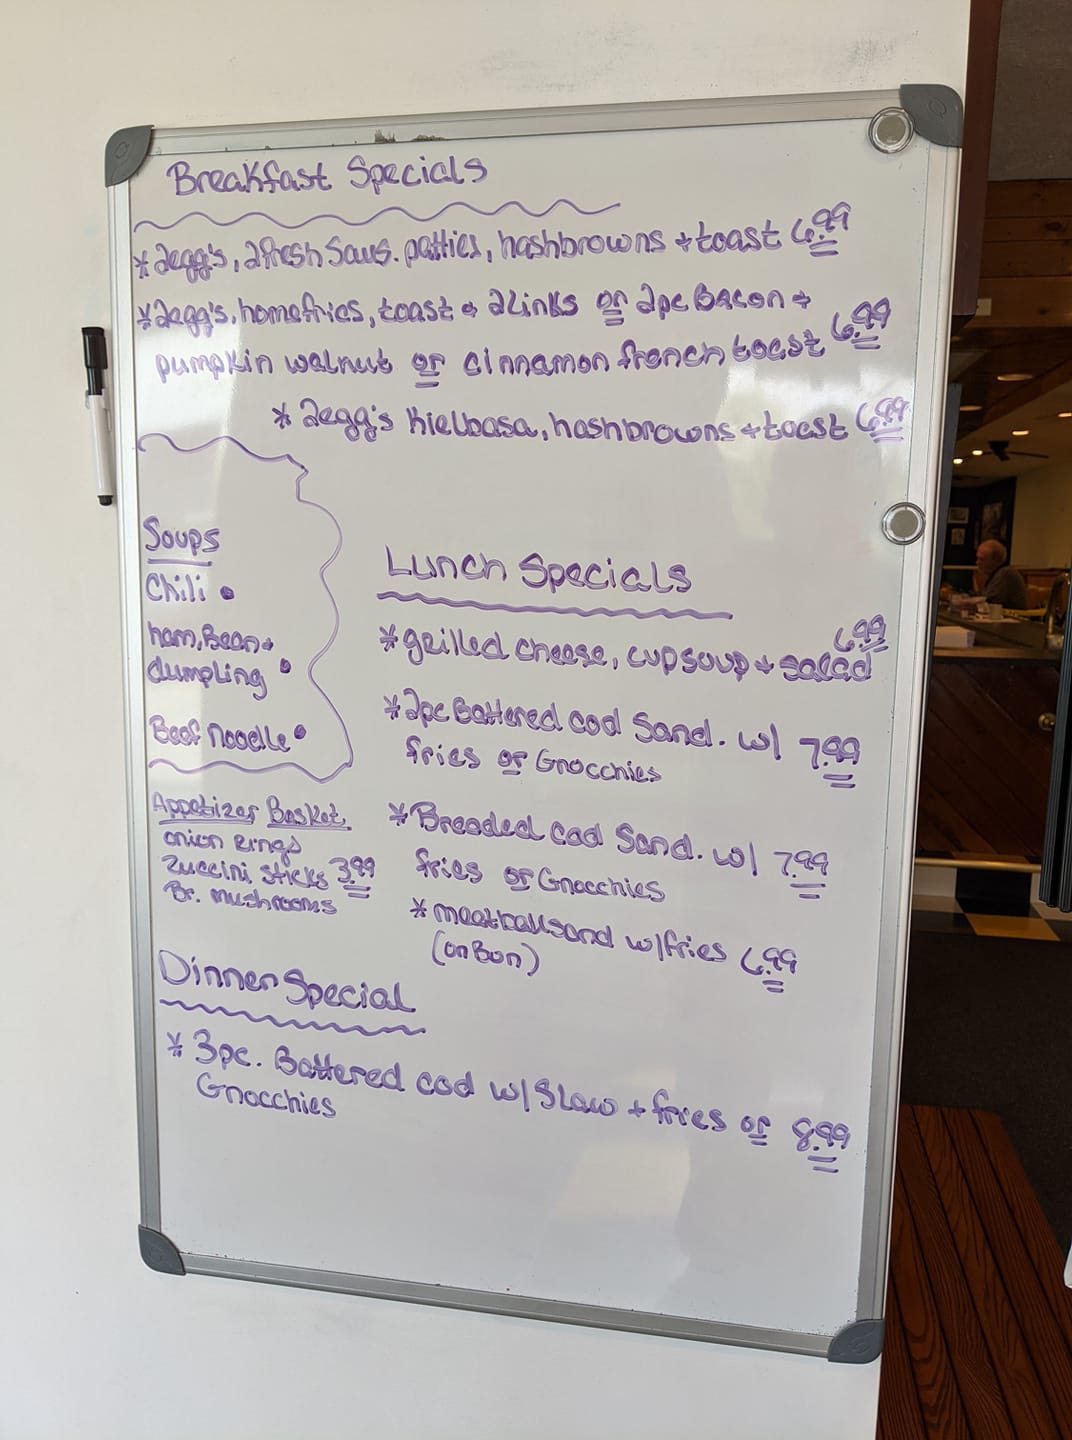 Breakfast Specials
* 2egg's, 2fresh Saus. patties, hashbrowns + toast 6.99
* 2egg's, homefries, toast + 2links or 2pc Bacon +
pumpkin walnut or cinnamon french toast 6.99
* 2egg's Kielbasa, hashbrowns + toast 6.99
Soups
Chili
ham, Bean +
dumpling
Beef noodle
Appetizer Basket
onion rings
Zuccini sticks 3.99
Br. mushrooms
Lunch Specials
* grilled cheese, cup soup + salad 6.99
* 2pc Battered cod Sand. w/ 7.99
fries or Gnocchies
* Breaded cod Sand. w/ 7.99
fries or Gnocchies
* meatball sand w/fries 6.99
(on Bun)
Dinner Special
* 3pc. Battered cod w/ Slaw + fries or 8.99
Gnocchies